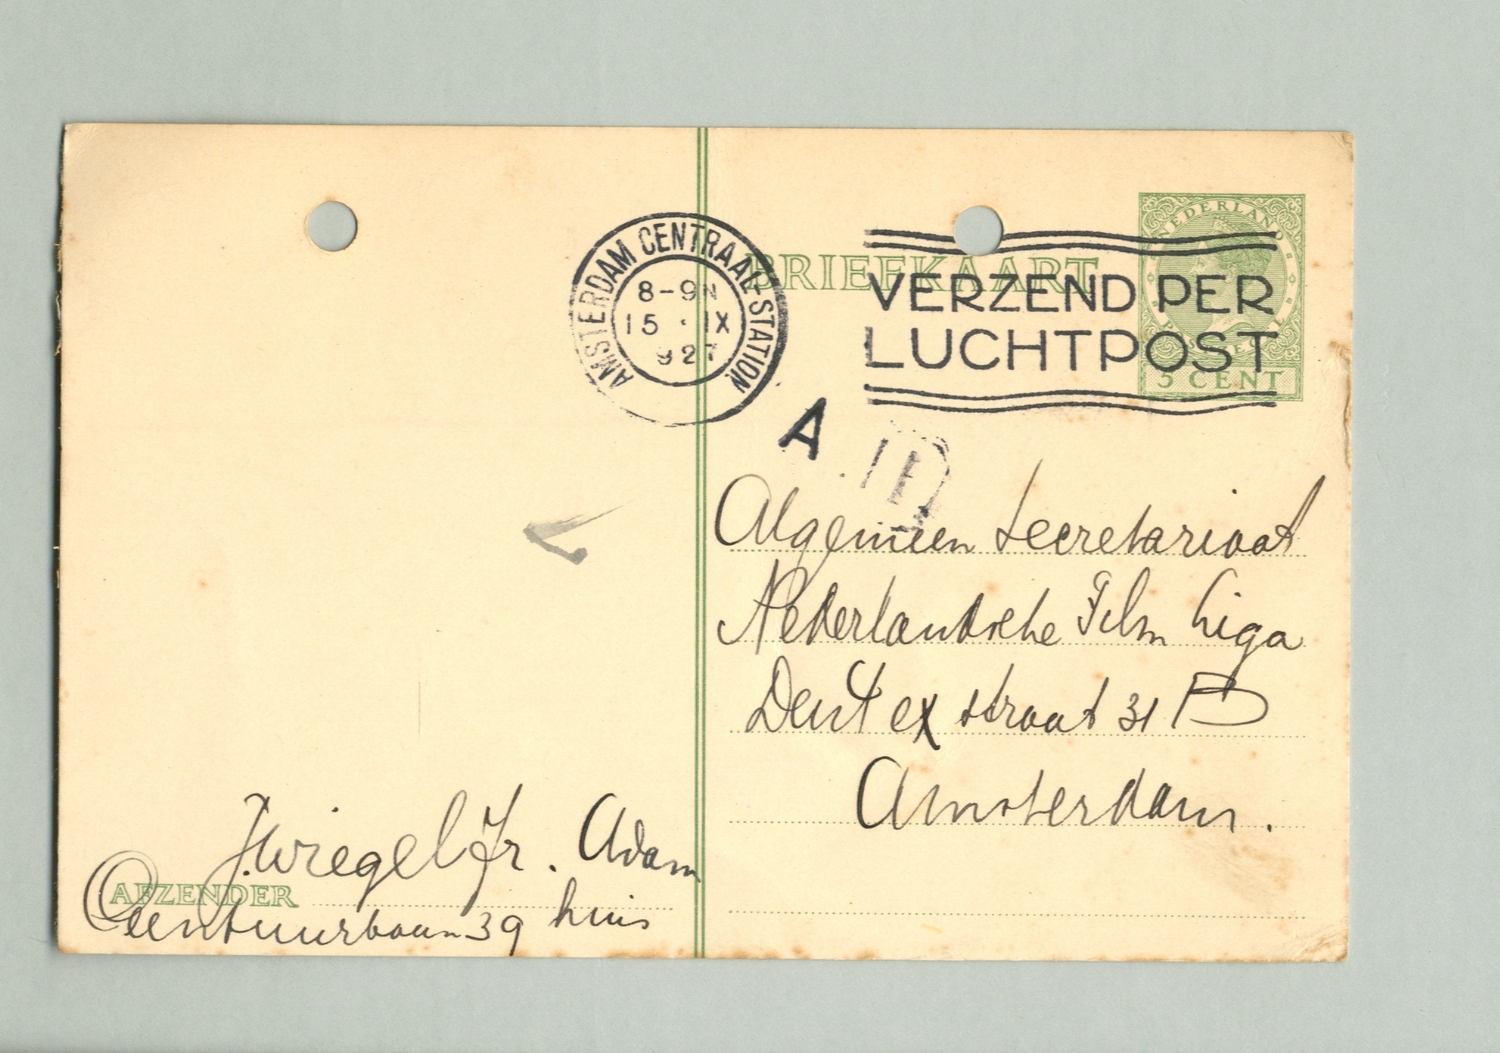 AMSTERDAM CENTRAAL-STATION
8-9N
15 · IX
927
BRIEFKAART
NEDERLAND
VERZEND PER
LUCHTPOST
5 CENT
A
Algemeen Secretariaat
Nederlandsche Film Liga
Den Texstraat 31
Amsterdam.
J. Wiegel Jr. Adam
AFZENDER
Ceentuurbaan 39 huis